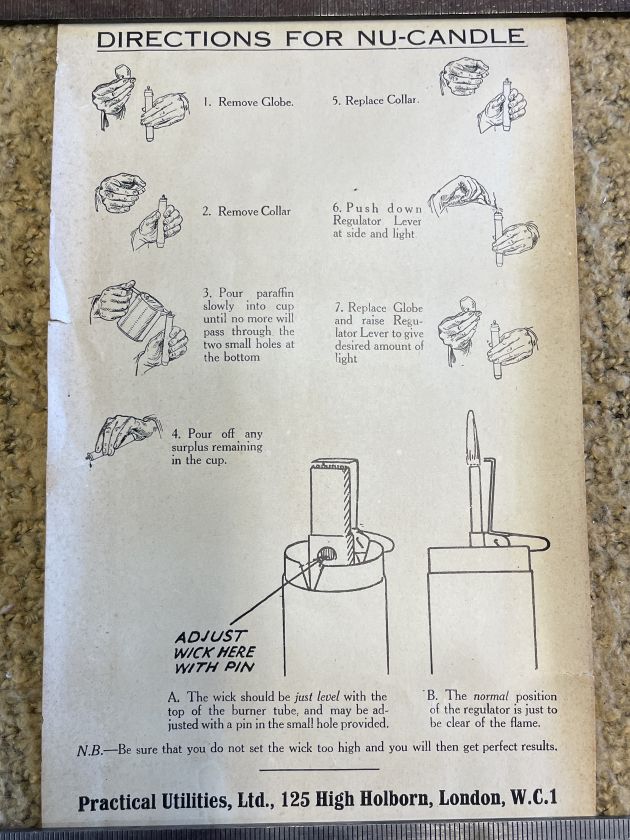 DIRECTIONS FOR NU-CANDLE
1. Remove Globe.
2. Remove Collar
3. Pour paraffin
slowly into cup
until no more will
pass through the
two small holes at
the bottom
4. Pour off any
surplus remaining
in the cup.
5. Replace Collar.
6. Push down
Regulator Lever
at side and light.
7. Replace Globe
and raise Regu-
lator Lever to give
desired amount of
light
ADJUST
WICK HERE
WITH PIN
A. The wick should be just level with the
top of the burner tube, and may be ad-
justed with a pin in the small hole provided.
B. The normal position
of the regulator is just to
be clear of the flame.
N.B.—Be sure that you do not set the wick too high and you will then get perfect results.
Practical Utilities, Ltd., 125 High Holborn, London, W.C.1